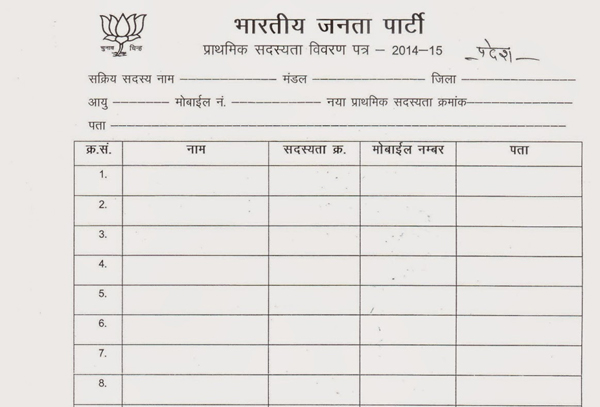 भारतीय जनता पार्टी
चुनाव चिन्ह
प्राथमिक सदस्यता विवरण पत्र – 2014–15
प्रदेश
सक्रिय सदस्य नाम मंडल जिला
आयु मोबाईल नं. नया प्राथमिक सदस्यता क्रमांक
पता
क्र.सं. नाम सदस्यता क्र. मोबाईल नम्बर पता
1.
2.
3.
4.
5.
6.
7.
8.